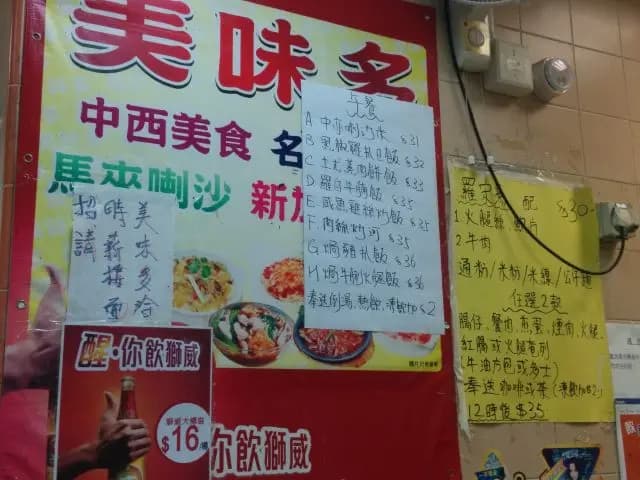 美味多
中西美食 名
馬來喇沙 新加
午餐
A 中亦喇沙米 $31
B 黑椒雞扒 飯 $32
C 土尤蒸肉餅飯 $33
D 羅宋牛腩飯 $35
E 咸魚雞絲炒飯 $35
F 肉絲炒河 $35
G 焗豬扒飯 $36
H 焗牛脷火腿飯 $36
奉送例湯、熱飲、凍飲加$2
美味多冷
時薪樓面
招請
羅宋 配 $30-
1.火腿絲
2.牛肉
通粉/米粉/米線/公仔麵
任選2款
腸仔、蟹肉、煎蛋、煙肉、火腿、
紅腸或火腿煮列
(牛油方包或多士)
奉送咖啡或茶(凍飲加$2)
12時後$35
醒·你飲獅威
獅威大樽裝
$16/樽
你飲獅威